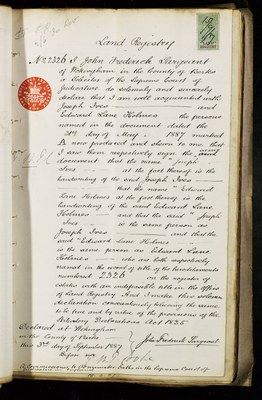 Land Registry
No 2326 I John Frederick Sargeant
of Wokingham in the County of Berks
a Solicitor of the Supreme Court of
Judicature do solemnly and sincerely
declare that I am well acquainted with
Joseph Ives and
Edward Lane Holmes the persons
named in the document dated the
3rd day of May 1887 marked
A now produced and shown to me that
I saw them respectively sign the said
document that the name "Joseph
Ives at the foot thereof is the
handwriting of the said Joseph Ives
that the name "Edward
Lane Holmes at the foot thereof is the
handwriting of the said Edward Lane
Holmes and that the said "Joseph
Ives is the same person as
Joseph Ives and that the
said "Edward Lane Holmes
is the same person as Edward Lane
Holmes who are both respectively
named in the word of title of the hereditaments
numbered 2326 on the register of
estates with an indefeasible title in the Office
of Land Registry And I make this solemn
declaration conscientiously believing the same
to be true and by virtue of the provisions of the
Statutory Declarations Act 1835
Declared at Wokingham
in the County of Berks
this 3rd day of September 1887
John Frederick Sargeant
Before me
A Commissioner to administer Oaths in the Supreme Court of